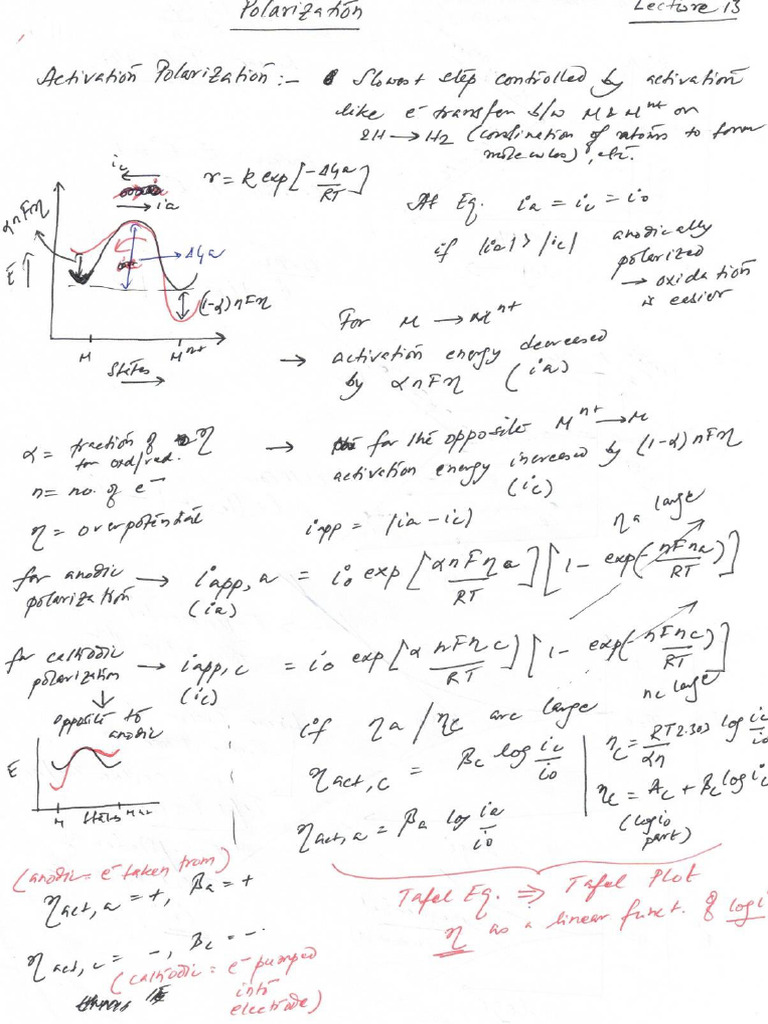 Polarization
Lecture 13
Activation Polarization :- Slowest step controlled by activation
like e⁻ transfer b/w M & Mⁿ⁺ or
2H → H₂ (combination of atoms to form
molecules), etc.
r = k exp [-ΔGa/RT]
ic
ia
αnFη
E ↑
ΔGa
(1-α)nFη
M
Mⁿ⁺
States →
At Eq. ia = ic = io
if |ia| > |ic| anodically
polarized
→ oxidation
is easier
For M → Mⁿ⁺
→ activation energy decreased
by αnFη (ia)
α = fraction of η
for oxd/red.
n = no. of e⁻
η = overpotential
→ for the opposite Mⁿ⁺ → M
activation energy increased by (1-α)nFη
(ic)
iapp = |ia - ic|
ηa large
for anodic polarization → iapp,a = io exp [αnFηa/RT] [1 - exp(-nFηa/RT)]
(ia)
for cathodic polarization → iapp,c = io exp [α nFηc/RT] [1 - exp(-nFηc/RT)]
(ic)
ηc large
↓
opposite to
anodic
E
M States Mⁿ⁺
if ηa/ηc are large
ηact,c = βc log ic/io
ηact,a = βa log ia/io
ηc = RT2.303/αn log ic/io
ηc = Ac + Bc log ic
(logio
part)
(anodic = e⁻ taken from)
ηact,a = +, βa = +
ηact,c = -, βc = -.
(cathodic = e⁻ pumped
into
electrode)
Tafel Eq. ⇒ Tafel Plot
η as a linear funct. of log i